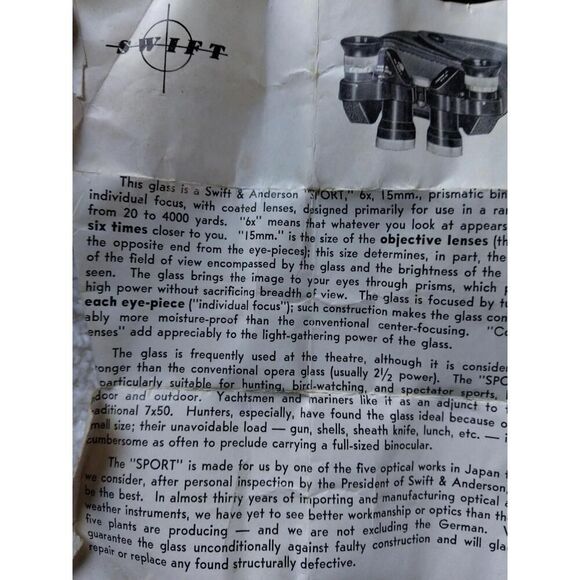 SWIFT
This glass is a Swift & Anderson "SPORT," 6x, 15mm., prismatic
individual focus, with coated lenses, designed primarily for use in a
from 20 to 4000 yards. "6x" means that whatever you look at appears
six times closer to you. "15mm." is the size of the objective lenses
the opposite end from the eye-pieces); this size determines, in part, the
of the field of view encompassed by the glass and the brightness of the
seen. The glass brings the image to your eyes through prisms, which
high power without sacrificing breadth of view. The glass is focused by
each eye-piece ("individual focus"); such construction makes the glass
ably more moisture-proof than the conventional center-focusing.
enses" add appreciably to the light-gathering power of the glass.
The glass is frequently used at the theatre, although it is
onger than the conventional opera glass (usually 2½ power). The
particularly suitable for hunting, bird-watching, and spectator sports,
door and outdoor. Yachtsmen and mariners like it as an adjunct to
aditional 7x50. Hunters, especially, have found the glass ideal because
mall size; their unavoidable load — gun, shells, sheath knife, lunch, etc. —
cumbersome as often to preclude carrying a full-sized binocular.
The "SPORT" is made for us by one of the five optical works in Japan
we consider, after personal inspection by the President of Swift & Anderson,
be the best. In almost thirty years of importing and manufacturing optical
weather instruments, we have yet to see better workmanship or optics than
five plants are producing — and we are not excluding the German.
guarantee the glass unconditionally against faulty construction and will
repair or replace any found structurally defective.